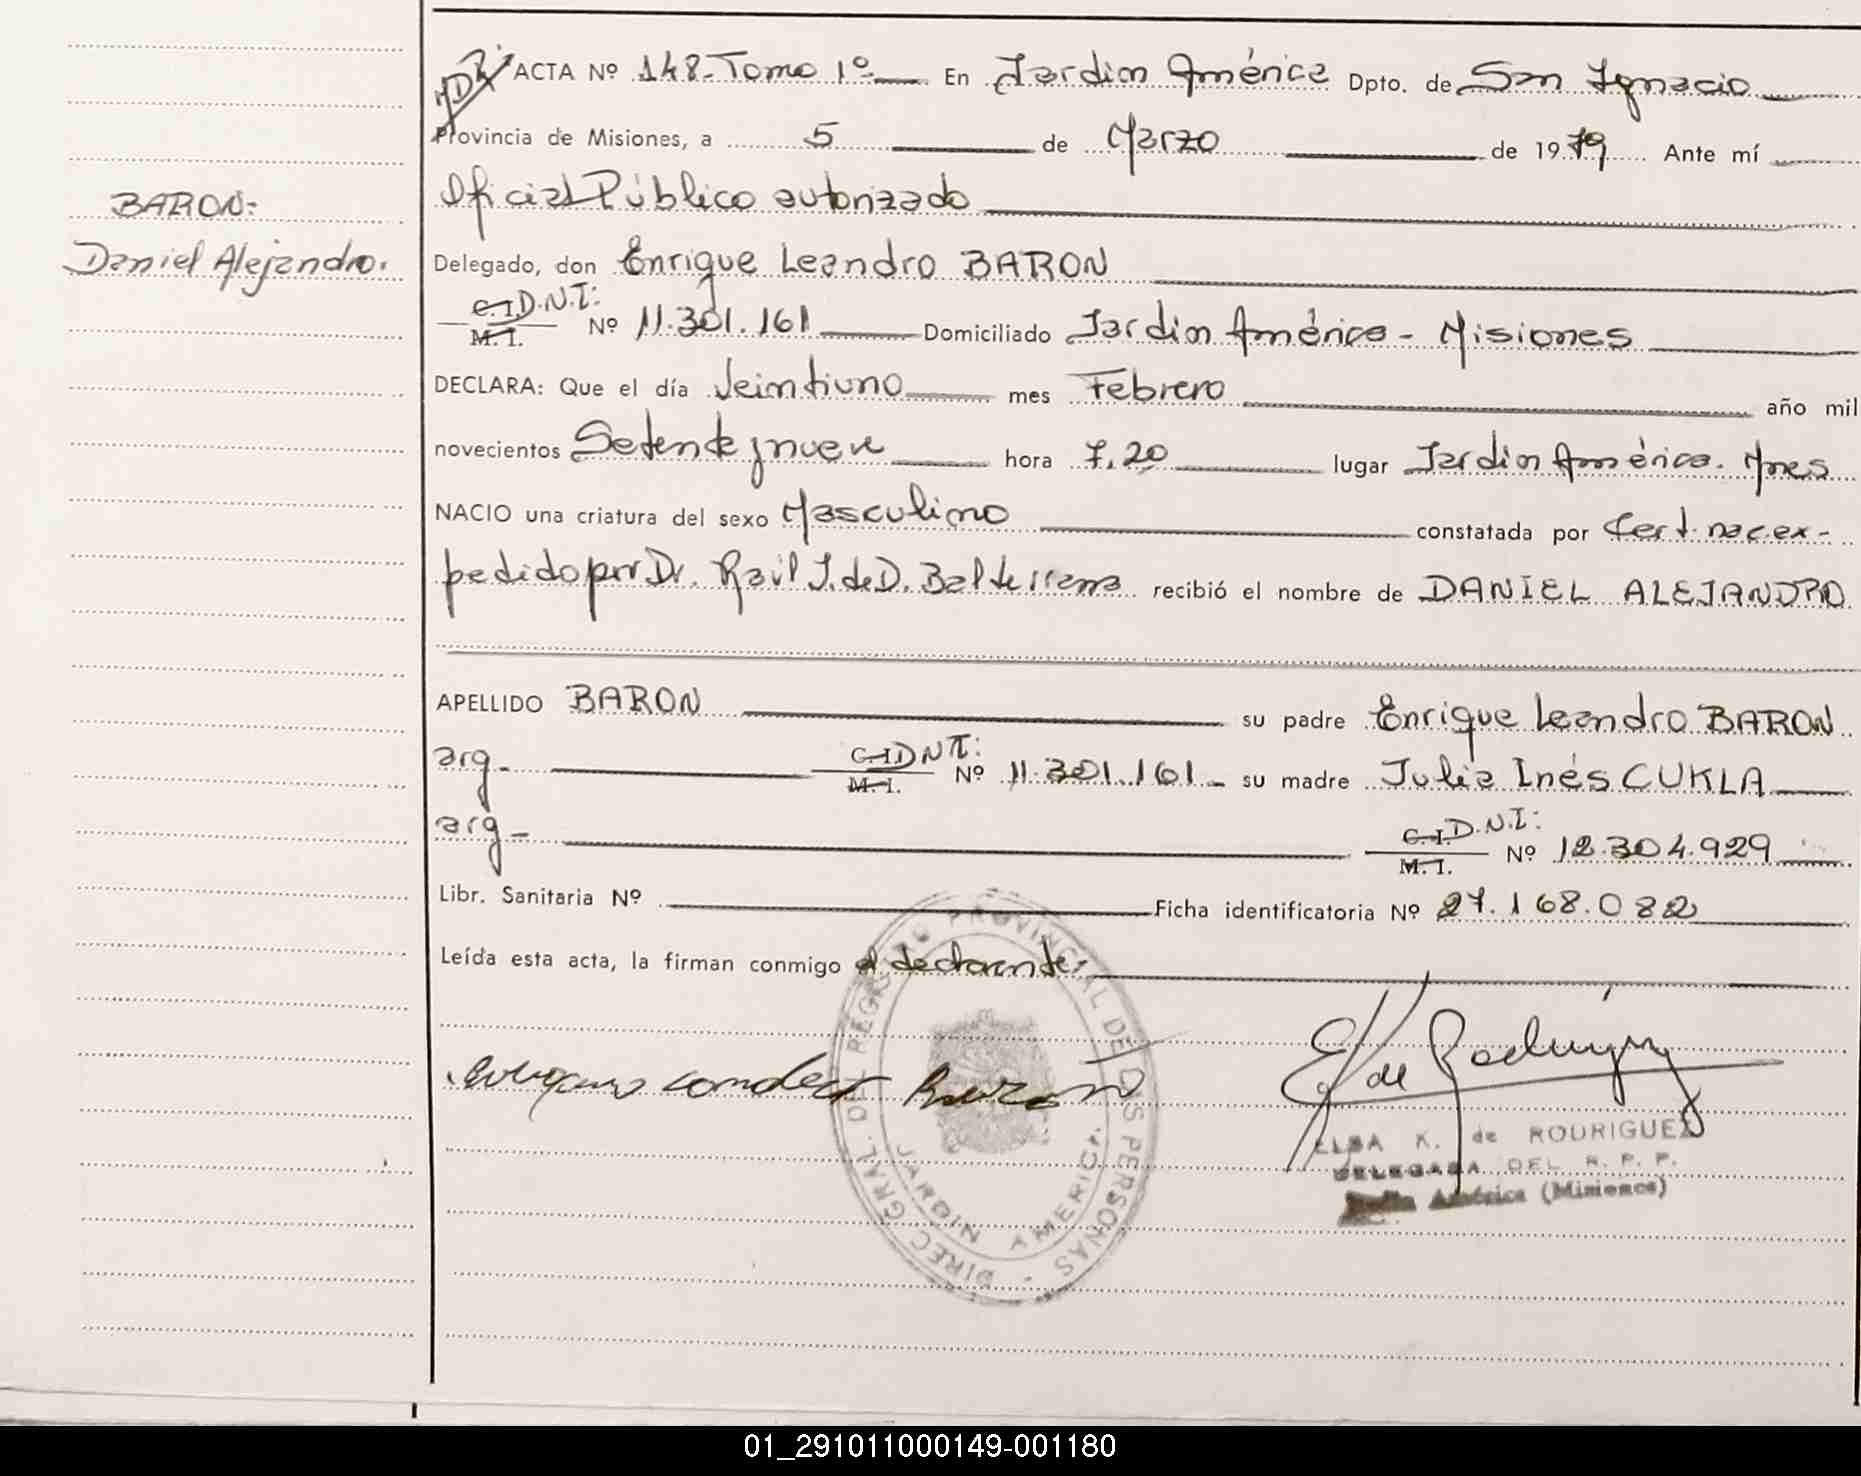 BARON:
Daniel Alejandro.
ACTA Nº 148-Tomo 1º En Jardin América Dpto. de San Ignacio
Provincia de Misiones, a 5 de Marzo de 1979 Ante mí
Oficial Público autorizado
Delegado, don Enrique Leandro BARON
C.I. D.N.I:
M.I. Nº 11.301.161 Domiciliado Jardin América - Misiones
DECLARA: Que el día Veintiuno mes Febrero año mil
novecientos Setenta y nueve hora 7,20 lugar Jardin América. Mnes
NACIO una criatura del sexo Masculino constatada por Cert. nac. ex-
pedido por Dr. Raúl J. de D. Balderrama recibió el nombre de DANIEL ALEJANDRO
APELLIDO BARON su padre Enrique Leandro BARON
arg- C.I. DNI:
M.I. Nº 11.301.161- su madre Julia Inés CUKLA
arg- C.I. D.N.I:
M.I. Nº 12.304.929
Libr. Sanitaria Nº Ficha identificatoria Nº 27.168.082
Leída esta acta, la firman conmigo el declarante,
DIREC. GRAL. DEL REGISTRO PROVINCIAL DE LAS PERSONAS -
JARDIN AMERICA
Baron
E K de Rodríguez
ELBA K. de RODRIGUEZ
DELEGADA DEL R. P. P.
Jardín América (Misiones)
01_291011000149-001180